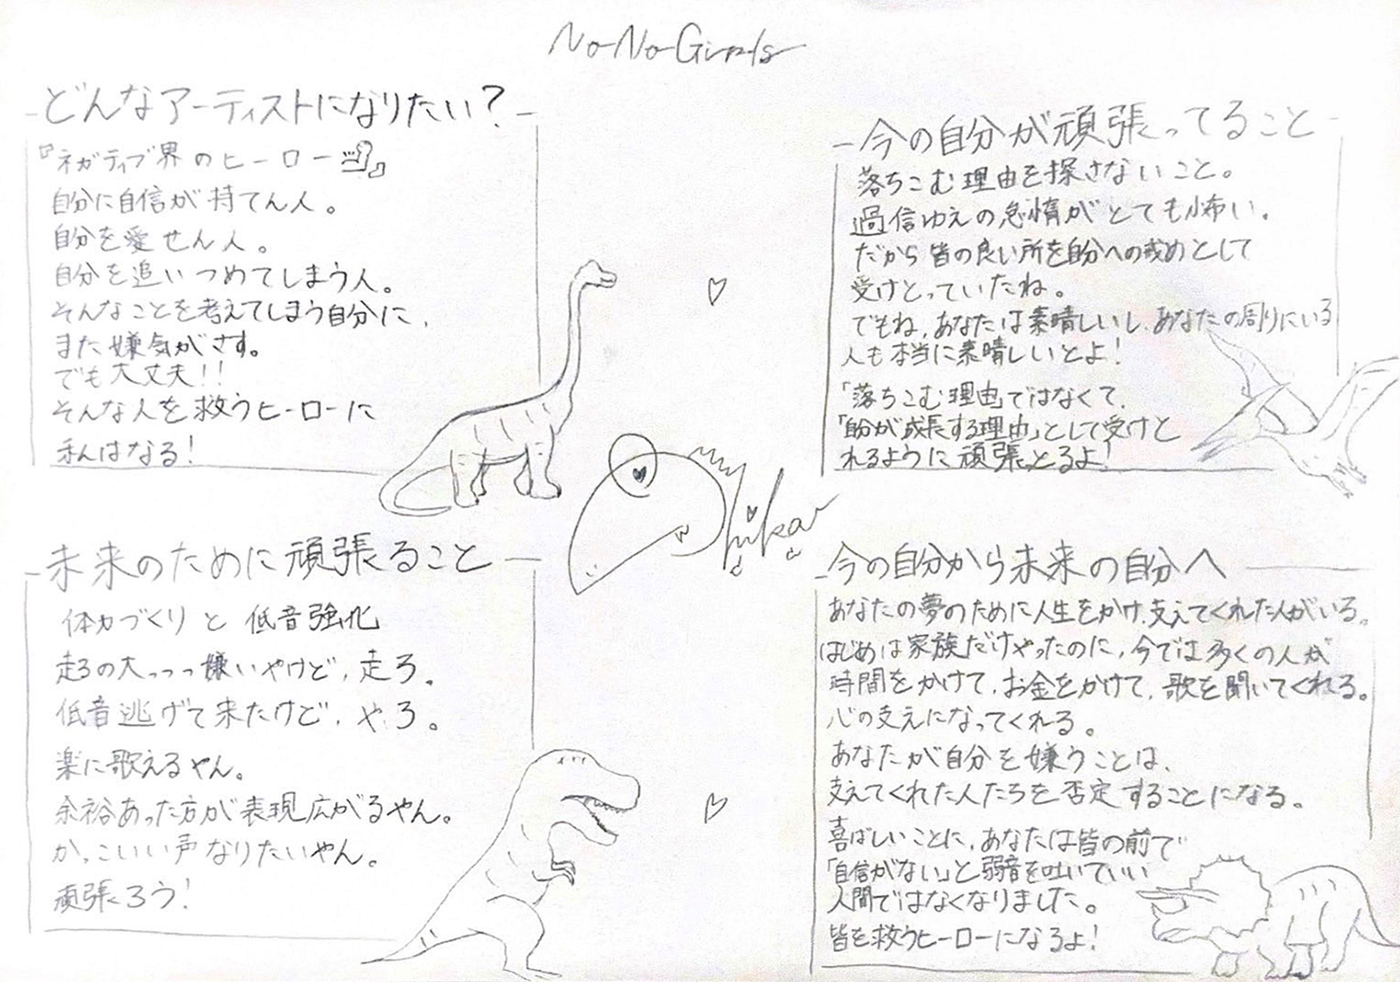 No No Girls
どんなアーティストになりたい?
『ネガティブ界のヒーロー』
自分に自信が持てん人。
自分を愛せん人。
自分を追いつめてしまう人。
そんなことを考えてしまう自分に、
また嫌気がさす。
でも大丈夫!!
そんな人を救うヒーローに
私はなる!
今の自分が頑張ってること
落ちこむ理由を探さないこと。
過信ゆえの怠惰がとても怖い。
だから皆の良い所を自分への戒めとして
受けとっていたね。
でもね、あなたは素晴しいし、あなたの周りにいる
人も本当に素晴しいとよ!
「落ちこむ理由」ではなくて、
「自分が成長する理由」として受けと
れるように頑張っとるよ!
Chikai
未来のために頑張ること
体力づくりと低音強化
走るの大っっっ嫌いやけど、走ろ。
低音逃げて来たけど、やろ。
楽に歌えるやん。
余裕あった方が表現広がるやん。
かっこいい声なりたいやん。
頑張ろう!
今の自分から未来の自分へ
あなたの夢のために人生をかけ、支えてくれた人がいる。
はじめは家族だけやったのに、今では多くの人が
時間をかけて、お金をかけて、歌を聞いてくれる。
心の支えになってくれる。
あなたが自分を嫌うことは、
支えてくれた人たちを否定することになる。
喜ばしいことに、あなたは皆の前で
「自信がない」と弱音を吐いていい
人間ではなくなりました。
皆を救うヒーローになるよ!